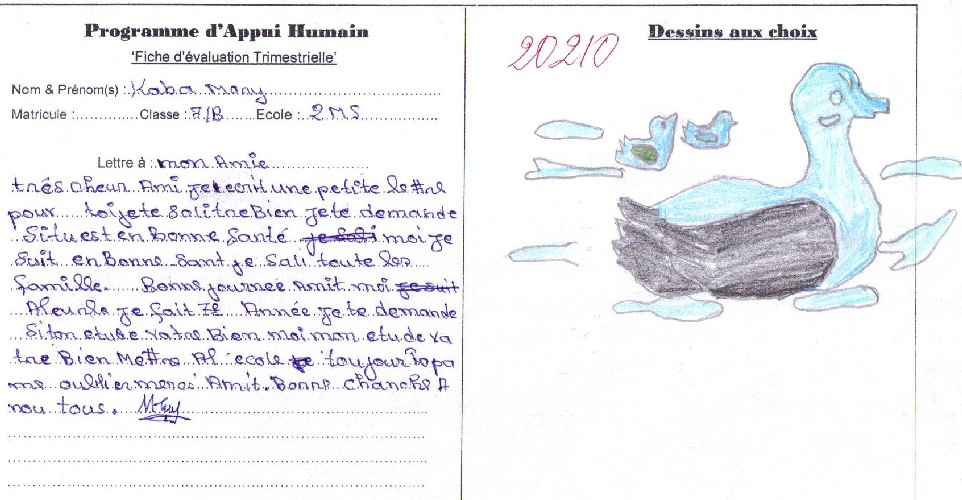 Programme d'Appui Humain
'Fiche d'évaluation Trimestrielle'
Nom & Prénom(s) : Kaba Mary
Matricule : Classe : 7/B Ecole : 2MS
Lettre à : mon Amie
trés cheur Ami je t ecrit une petite lettre
pour toi je te salitre Bien je te demande
Si tu est en Bonne Santé je Sali moi je
Suit en Bonne Sant je Sali toute les
familles. Bonne journee Amit moi je suit
A leurle je fait 7è Année je te demande
Si ton etude vatre Bien moi mon etude va
tre Bien Mettre Al ecole toujour
me oublier merci Amit. Bonne chanche A
nou tous. Mary
20210
Dessins aux choix